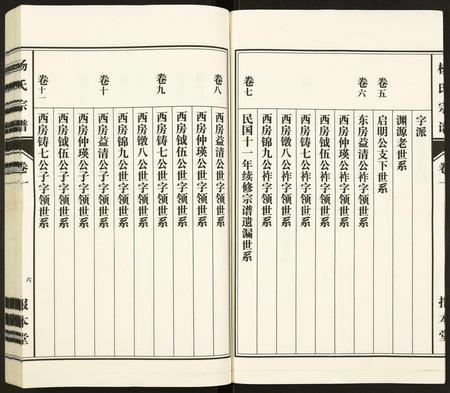 杨氏宗谱
卷一
报本堂
字派
渊源老世系
卷五
启明公支下世系
卷六
东房益清公祚字领世系
西房仲瑛公祚字领世系
西房钺伍公祚字领世系
西房铸七公祚字领世系
西房镦八公祚字领世系
西房锦九公祚字领世系
卷七
民国十一年续修宗谱遗漏世系
卷八
东房益清公世字领世系
西房仲瑛公世字领世系
西房钺伍公世字领世系
卷九
西房铸七公世字领世系
西房镦八公世字领世系
西房锦九公世字领世系
卷十
东房益清公子字领世系
西房仲瑛公子字领世系
西房钺伍公子字领世系
卷十一
西房铸七公子字领世系
杨氏宗谱
卷一
六
报本堂